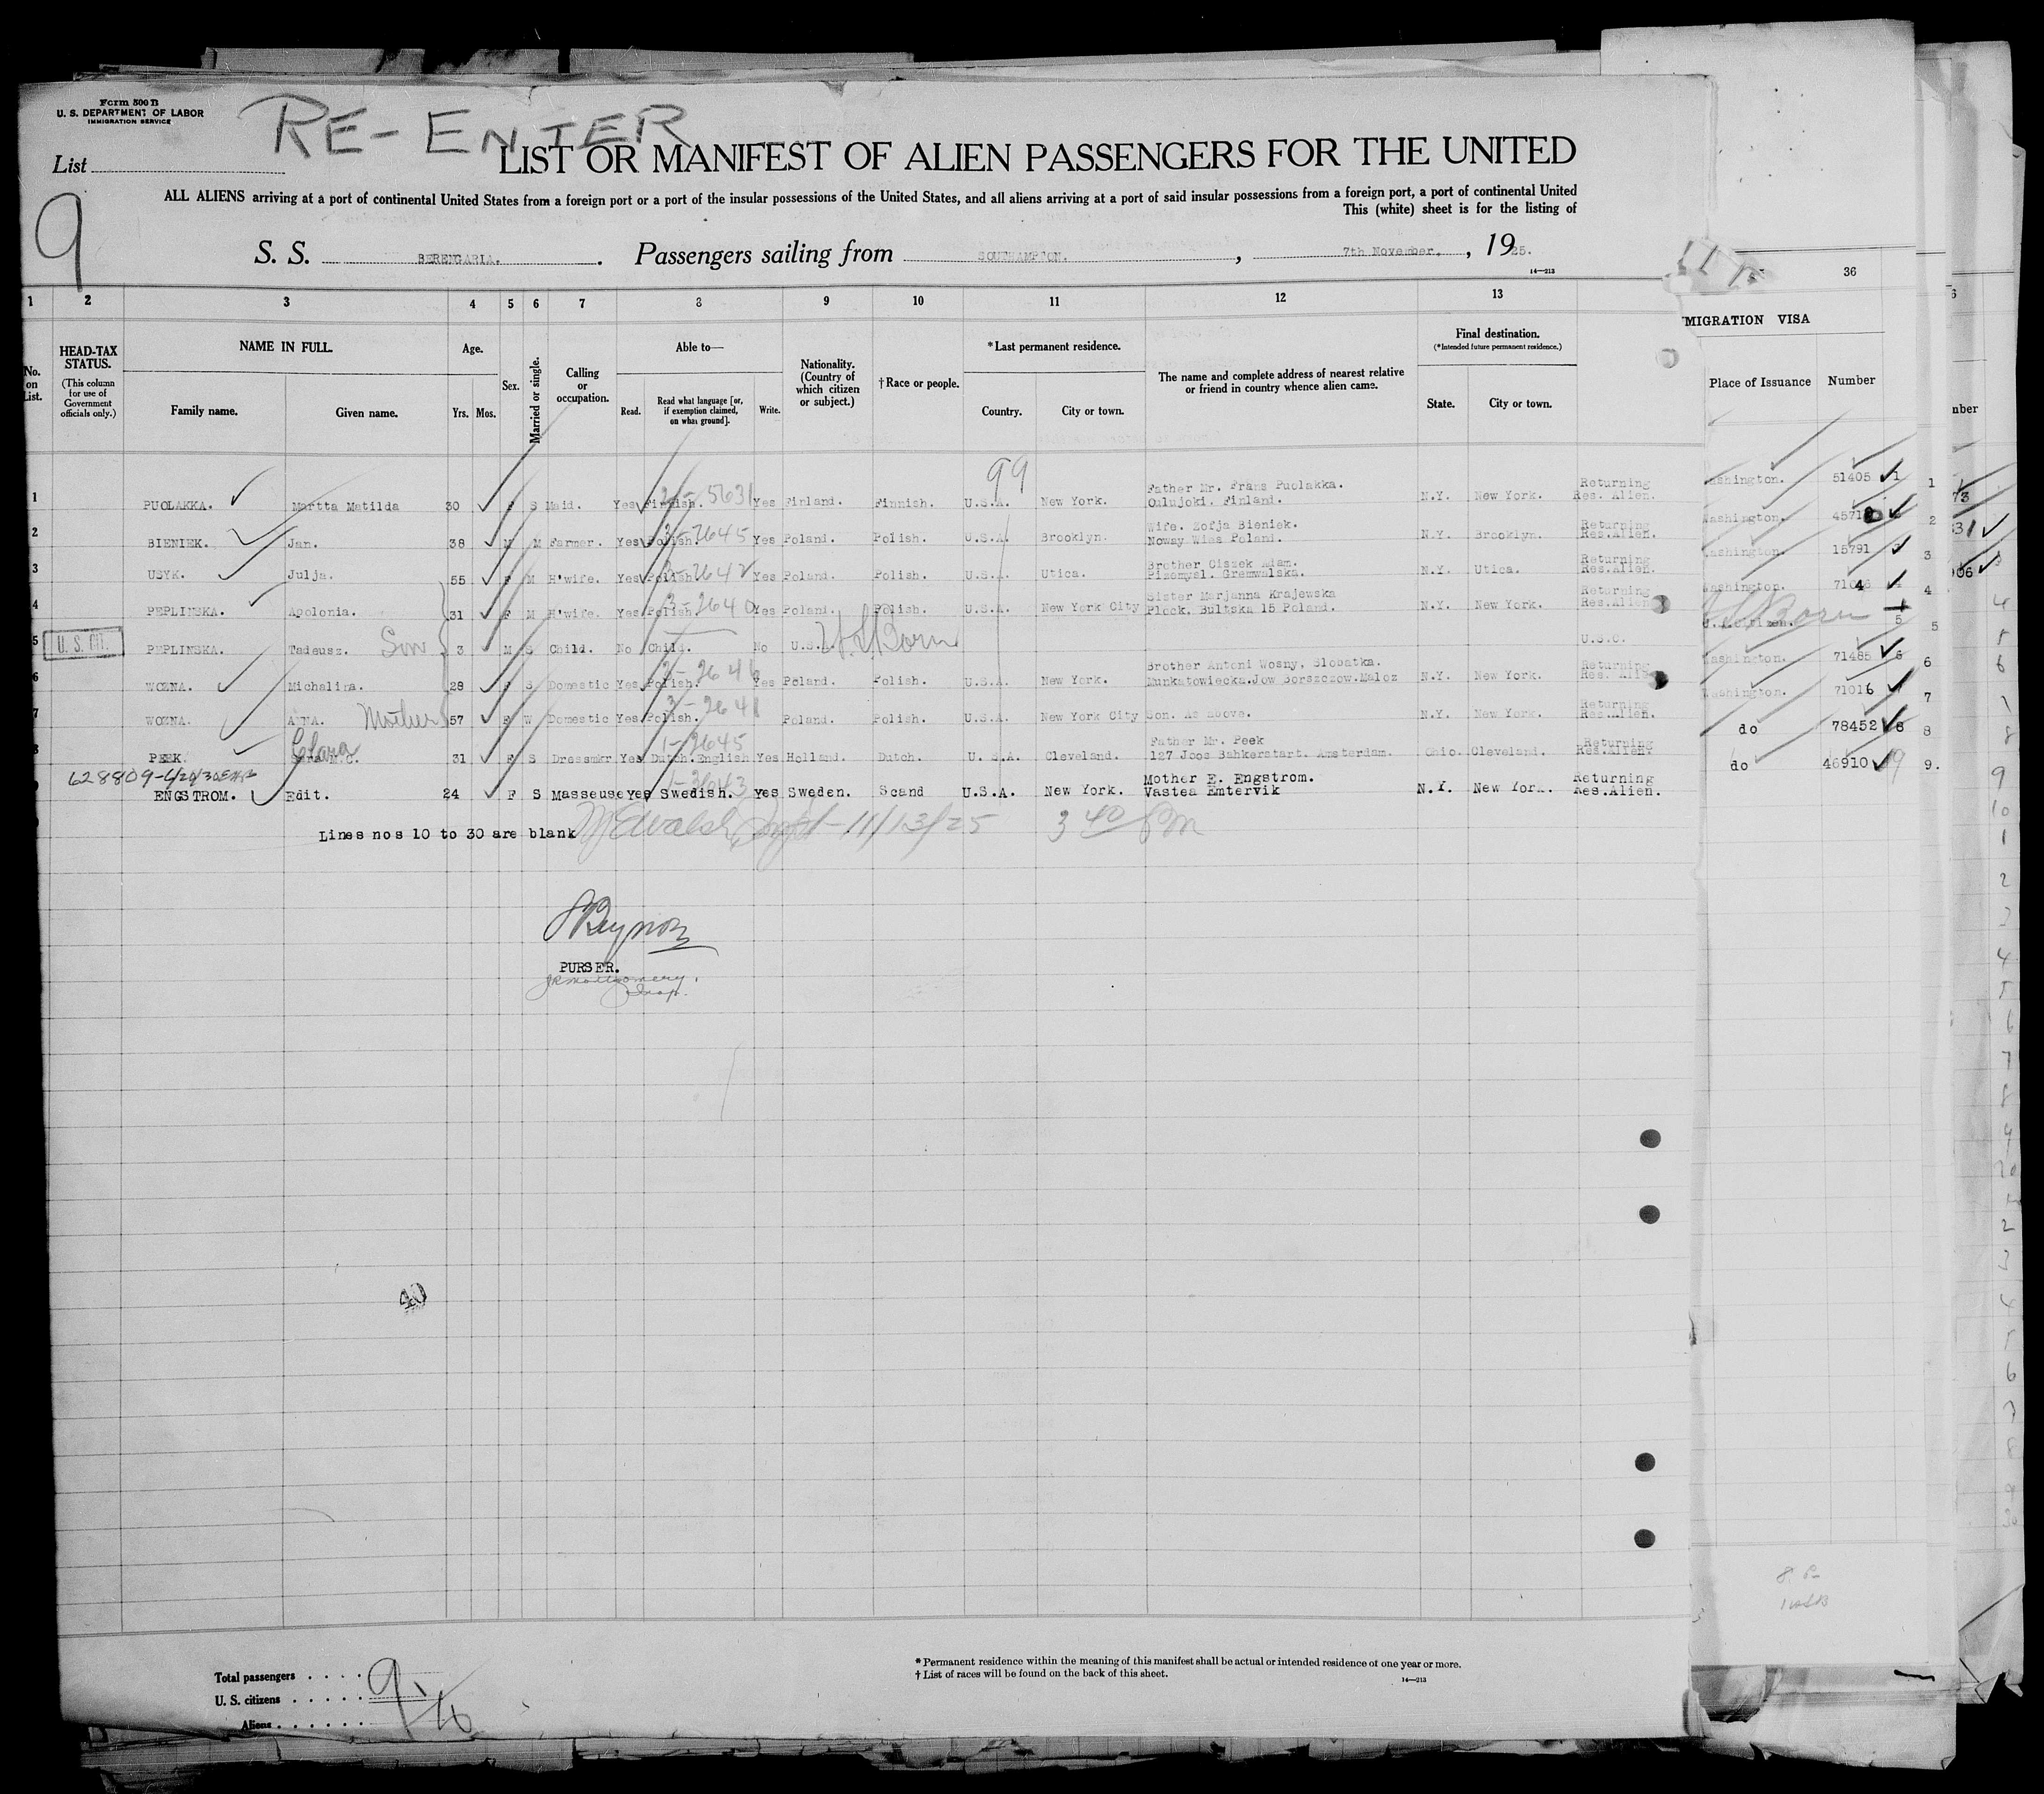 Form 500 B
U. S. DEPARTMENT OF LABOR
IMMIGRATION SERVICE
RE-ENTER
List
LIST OR MANIFEST OF ALIEN PASSENGERS FOR THE UNITED
9
ALL ALIENS arriving at a port of continental United States from a foreign port or a port of the insular possessions of the United States, and all aliens arriving at a port of said insular possessions from a foreign port, a port of continental United
This (white) sheet is for the listing of
S. S. BERENGARIA. Passengers sailing from SOUTHAMPTON, 7th November, 1925.
14—213
36
1 2 3 4 5 6 7 8 9 10 11 12 13
MIGRATION VISA
No. on List.
HEAD-TAX STATUS. (This column for use of Government officials only.)
NAME IN FULL. Family name. Given name.
Age. Yrs. Mos.
Sex.
Married or single.
Calling or occupation.
Able to— Read. Read what language [or, if exemption claimed, on what ground]. Write.
Nationality. (Country of which citizen or subject.)
†Race or people.
*Last permanent residence. Country. City or town.
The name and complete address of nearest relative or friend in country whence alien came.
Final destination. (*Intended future permanent residence.) State. City or town.
Place of Issuance Number
99
1 PUOLAKKA. Martta Matilda 30 F S Maid. Yes Finnish. 5631 Yes Finland. Finnish. U.S.A. New York. Father Mr. Frans Puolakka. Oulujoki. Finland. N.Y. New York. Returning Res. Alien. Washington. 51405 1
2 BIENIEK. Jan. 38 M M Farmer. Yes Polish. 2645 Yes Poland. Polish. U.S.A. Brooklyn. Wife. Zofja Bieniek. Noway Wies Poland. N.Y. Brooklyn. Returning Res.Alien. Washington. 2
3 USYK. Julja. 55 F M H'wife. Yes Polish 2642 Yes Poland. Polish. U.S.A. Utica. Brother Ciszek Adam. Pizemysl. Gremwalska. N.Y. Utica. Returning Res.Alien. Washington. 15791 3
4 PEPLINSKA. Apolonia. 31 F M H'wife. Yes Polish. 2640 Yes Poland. Polish. U.S.A. New York City Sister Marjanna Krajewska Plock. Bultska 15 Poland. N.Y. New York. Returning Res.Alien Washington. 4
5 U. S. CIT. PEPLINSKA. Tadeusz. Son 3 M S Child. No Child. No U.S.A. U.S. Born U.S.C. U.S. Born 5
6 WOZNA. Michalina. 28 F S Domestic Yes Polish. 2646 Yes Poland. Polish. U.S.A. New York. Brother Antoni Wosny, Slobatka. Munkatowiecka.Jow Borszczow.Maloz N.Y. New York. Returning Res. Alien Washington. 71485 6
7 WOZNA. ANNA. Mother 57 F W Domestic Yes Polish. 2641 Poland. Polish. U.S.A. New York City Son. As above. N.Y. New York. Returning Res.Alien. Washington. 71016 7
8 PEEK. Clara M.C. 31 F S Dressmkr Yes Dutch.English 1-2645 Yes Holland. Dutch. U.S.A. Cleveland. Father Mr. Peek 127 Joos Bahkerstart. Amsterdam. Ohio. Cleveland. Returning Res.Alien. do 78452 8
628809-4/24/30
ENGSTROM. Edit. 24 F S Masseuse Yes Swedish. Yes Sweden. Scand U.S.A. New York. Mother E. Engstrom. Vastea Emtervik N.Y. New York. Returning Res.Alien. do 46910 9.
Lines nos 10 to 30 are blank
11/13/25 3 40 Pm
PURSER.
JR Montgomery.
Insp.
40
Total passengers 9
U. S. citizens 1
Aliens
* Permanent residence within the meaning of this manifest shall be actual or intended residence of one year or more.
† List of races will be found on the back of this sheet.
14—213